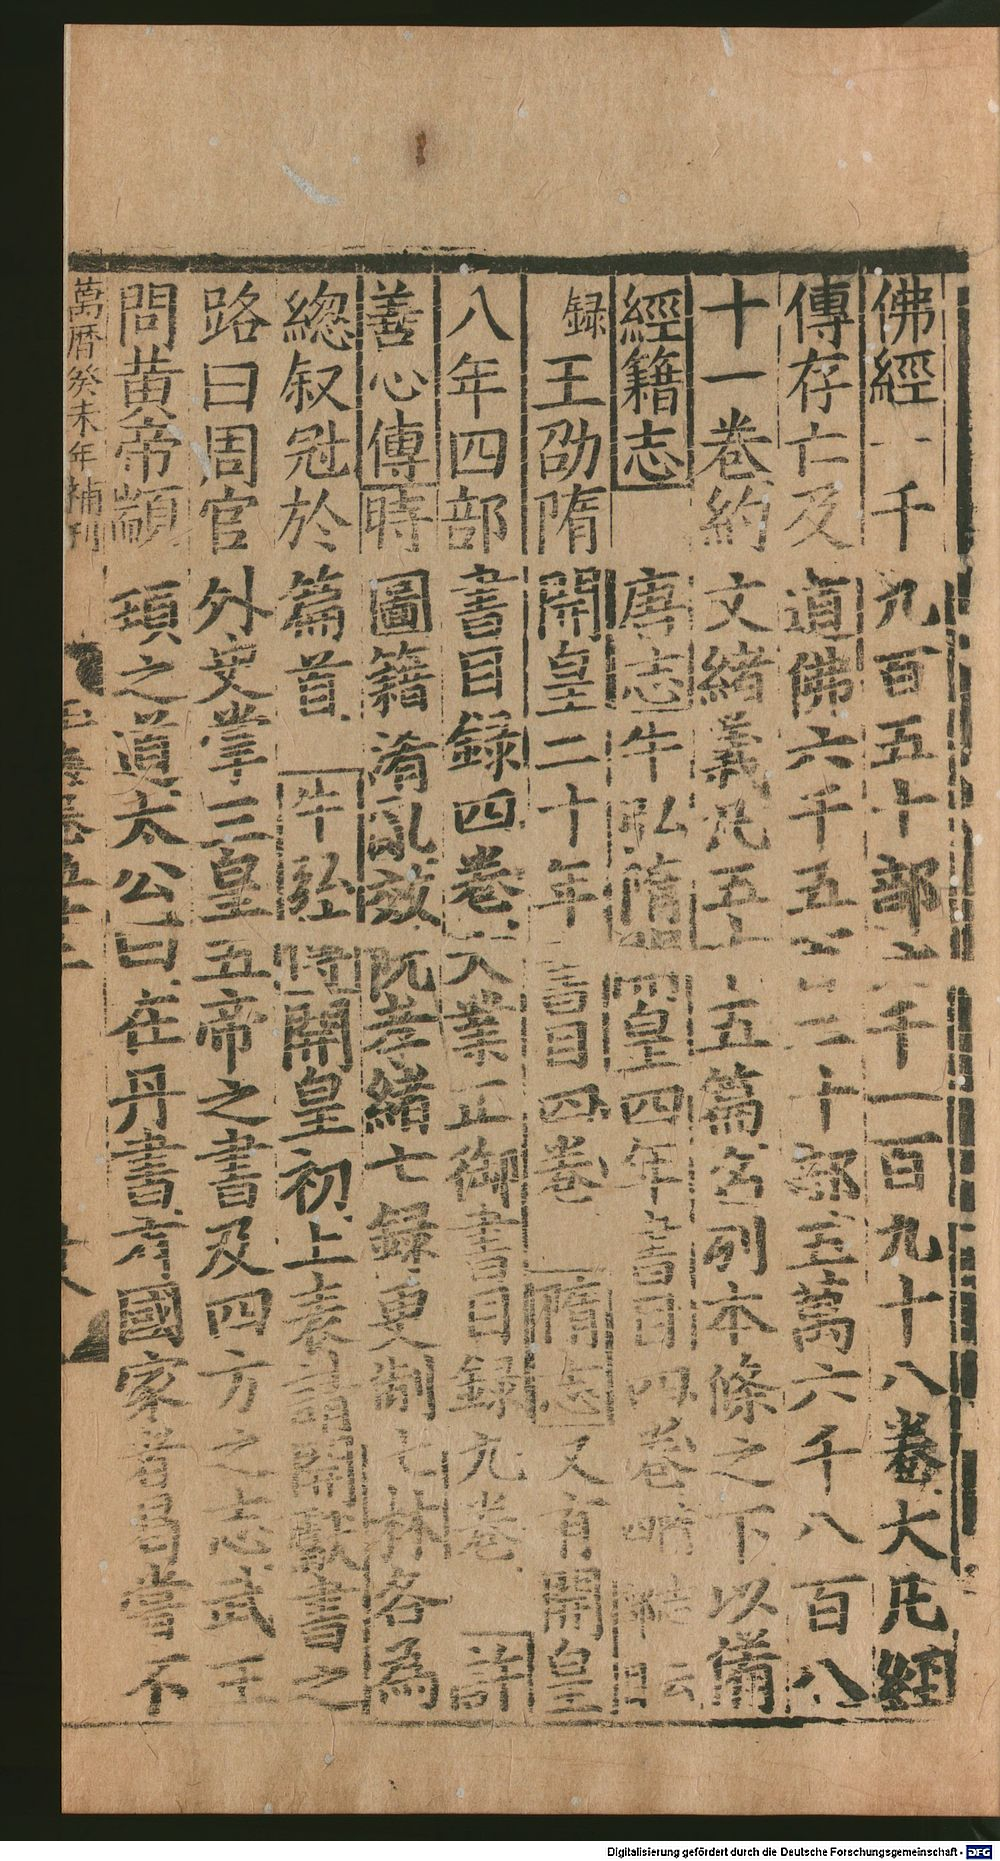 佛經一千九百五十部六千一百九十八卷大凡經
傳存亡及道佛六千五百二十部五萬六千八百八
十一卷約文緒義凡五十五篇各列本條之下以備
經籍志 唐志牛弘隋開皇四年書目四卷
録 王劭隋開皇二十年書目四卷 隋志又有開皇
八年四部書目録四卷大業正御書目録九卷 許
善心傳時圖籍淆亂放阮孝緒七録更制七林各為
緫叙冠於篇首 牛弘 開皇初上表請開獻書之
路曰周官外史掌三皇五帝之書及四方之志武王
問黃帝顓頊之道太公曰在丹書有國家者曷嘗不
萬曆癸未年補刊
玉海卷五十二
Digitalisierung gefördert durch die Deutsche Forschungsgemeinschaft - DFG